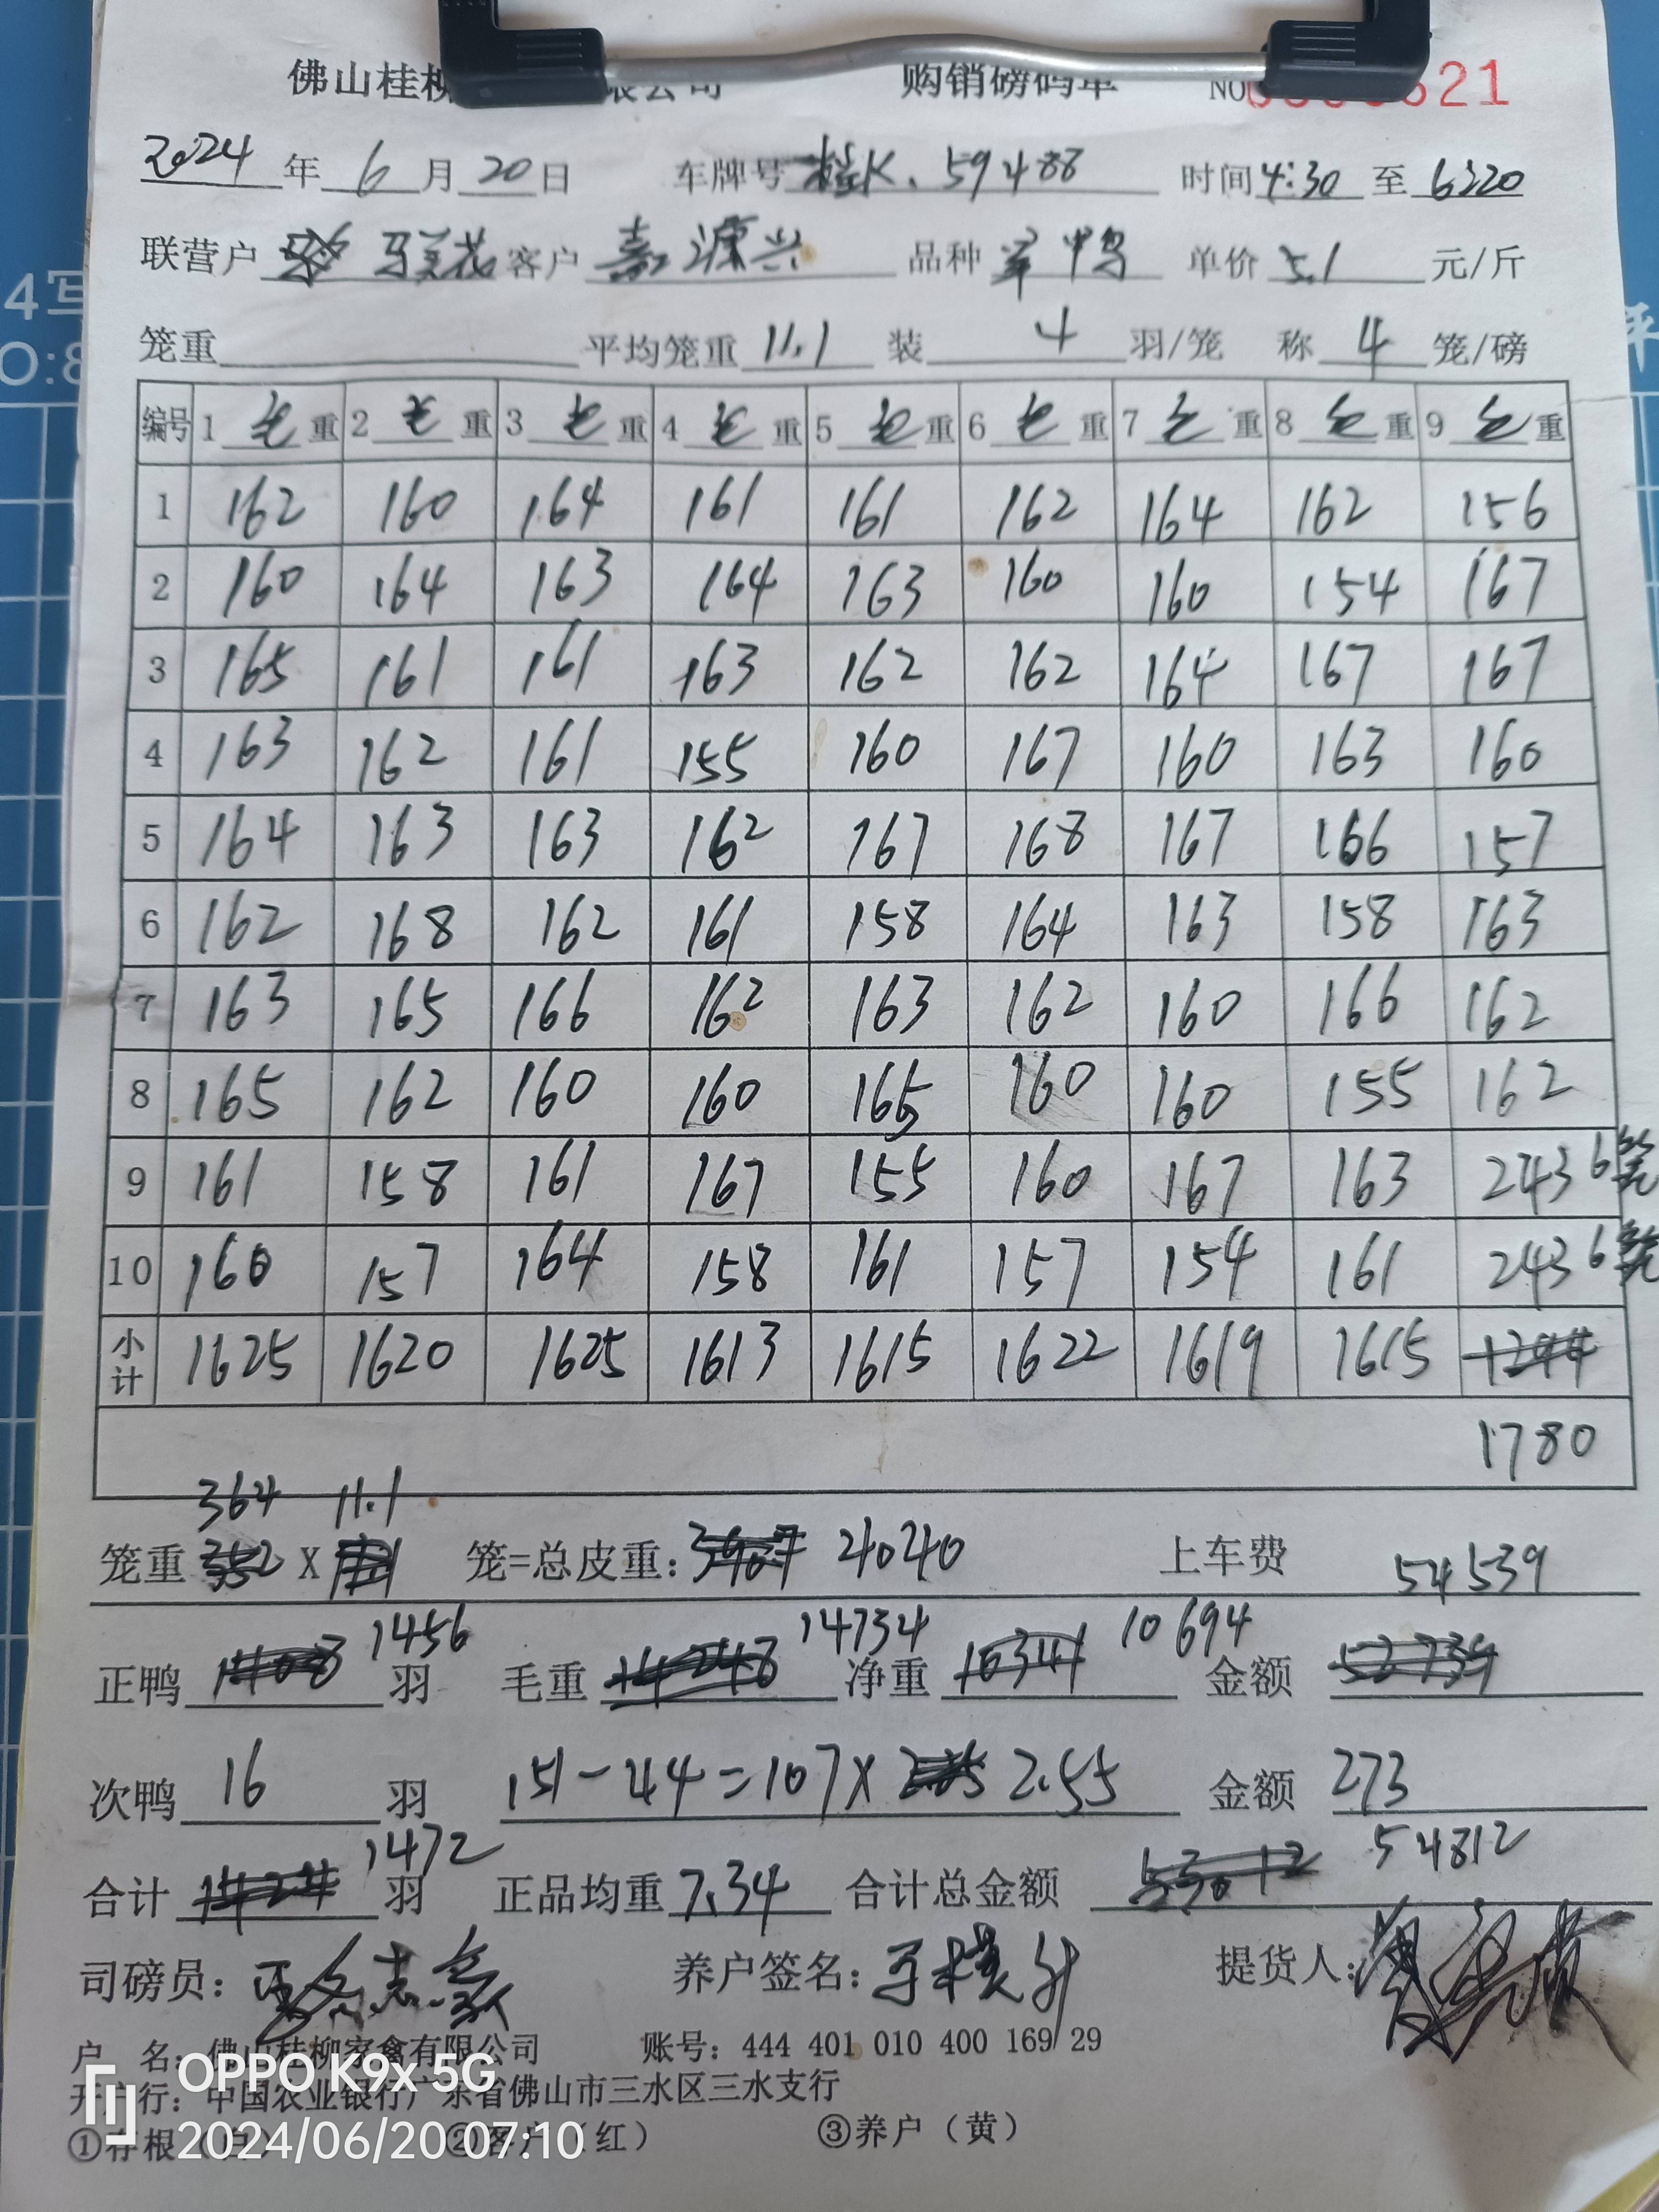 佛山桂柳 限公司 购销磅码单 NO 621
2024年6月20日 车牌号 桂K.59488 时间4:30至6:20
联营户 马美花 客户 嘉源兴 品种 单价 5.1 元/斤
笼重 平均笼重 11.1 装 4 羽/笼 称 4 笼/磅
编号 1 毛 重 2 毛 重 3 毛 重 4 毛 重 5 毛 重 6 毛 重 7 毛 重 8 毛 重 9 毛 重
1 162 160 164 161 161 162 164 162 156
2 160 164 163 164 163 160 160 154 167
3 165 161 161 163 162 162 164 167 167
4 163 162 161 155 160 167 160 163 160
5 164 163 163 162 167 168 167 166 157
6 162 168 162 161 158 164 163 158 163
7 163 165 166 162 163 162 160 166 162
8 165 162 160 160 165 160 160 155 162
9 161 158 161 167 155 160 167 163 243 6笼
10 160 157 164 158 161 157 154 161 243 6笼
小计 1625 1620 1625 1613 1615 1622 1619 1615 1244
1780
364 11.1
笼重 352 X 笼=总皮重: 3907 4040 上车费 54539
1456 14734 10694
正鸭 1408 羽 毛重 14248 净重 10341 金额 52739
次鸭 16 羽 151-44=107X 2.55 金额 273
1472 54812
合计 1424 羽 正品均重 7.34 合计总金额 53012
司磅员: 骆志豪 养户签名: 提货人:
户 名: 佛山桂柳家禽有限公司 账号: 444 401 010 400 169 29
开户行: 中国农业银行广东省佛山市三水区三水支行
①存根(白) ②客户(红) ③养户(黄)
OPPO K9x 5G
2024/06/20 07:10